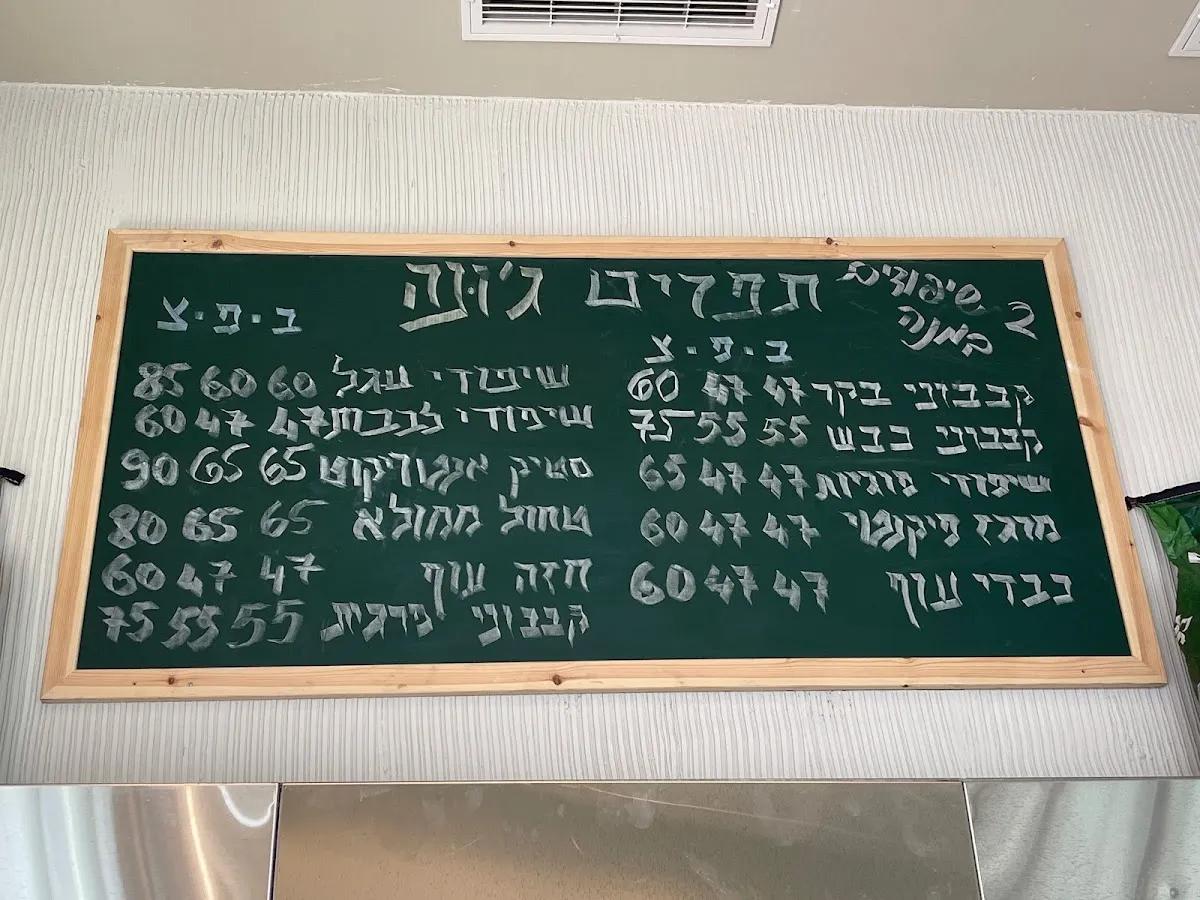 תפריט ג'ונה
2 שיפודים
במנה
ב.פ.צ
קבבוני בקר 47 47 60
קבבוני כבש 55 55 75
שיפודי פרגיות 47 47 65
מרגז פיקנטי 47 47 60
כבדי עוף 47 47 60
ב.פ.צ
שיפודי עגל 60 60 85
שיפודי לבבות 47 47 60
סטיק אנטריקוט 65 65 90
טחול ממולא 65 65 80
חזה עוף 47 47 60
קבבוני פרגית 55 55 75